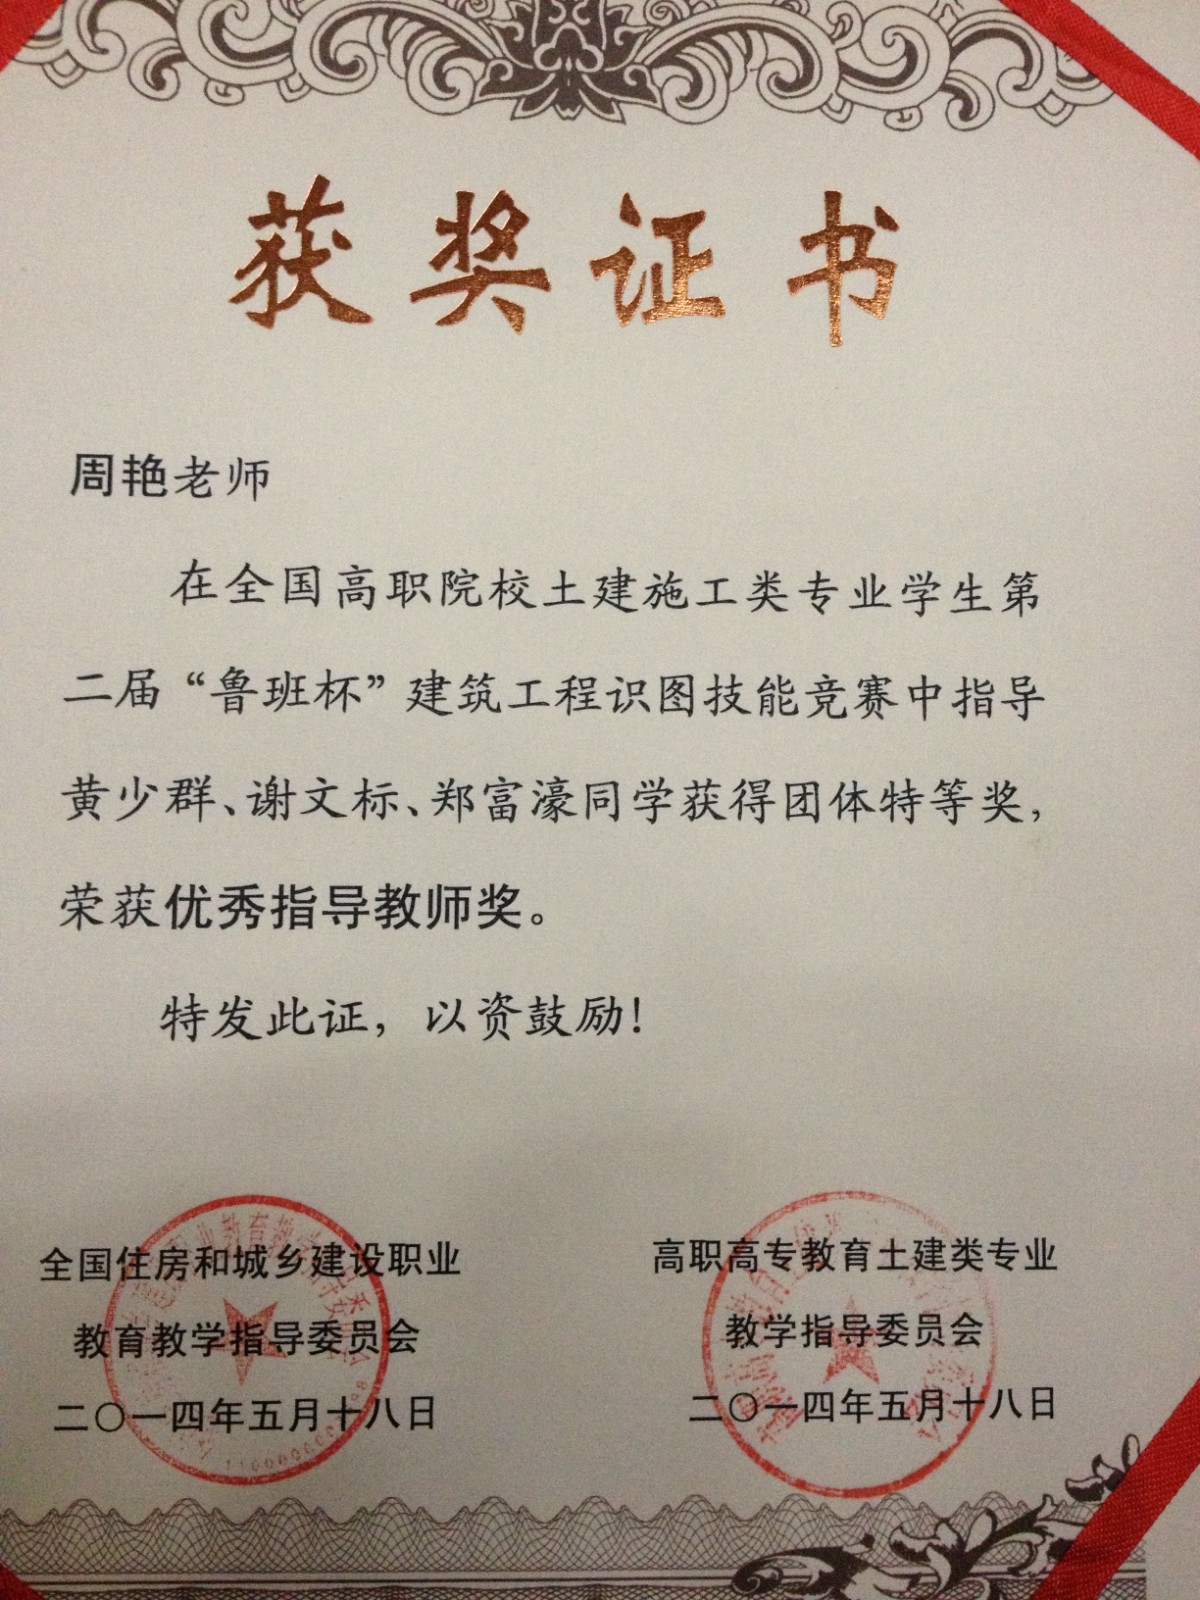 获奖证书
周艳老师
在全国高职院校土建施工类专业学生第
二届“鲁班杯”建筑工程识图技能竞赛中指导
黄少群、谢文标、郑富濠同学获得团体特等奖，
荣获优秀指导教师奖。
特发此证，以资鼓励！
全国住房和城乡建设职业
教育教学指导委员会
二〇一四年五月十八日
高职高专教育土建类专业
教学指导委员会
二〇一四年五月十八日